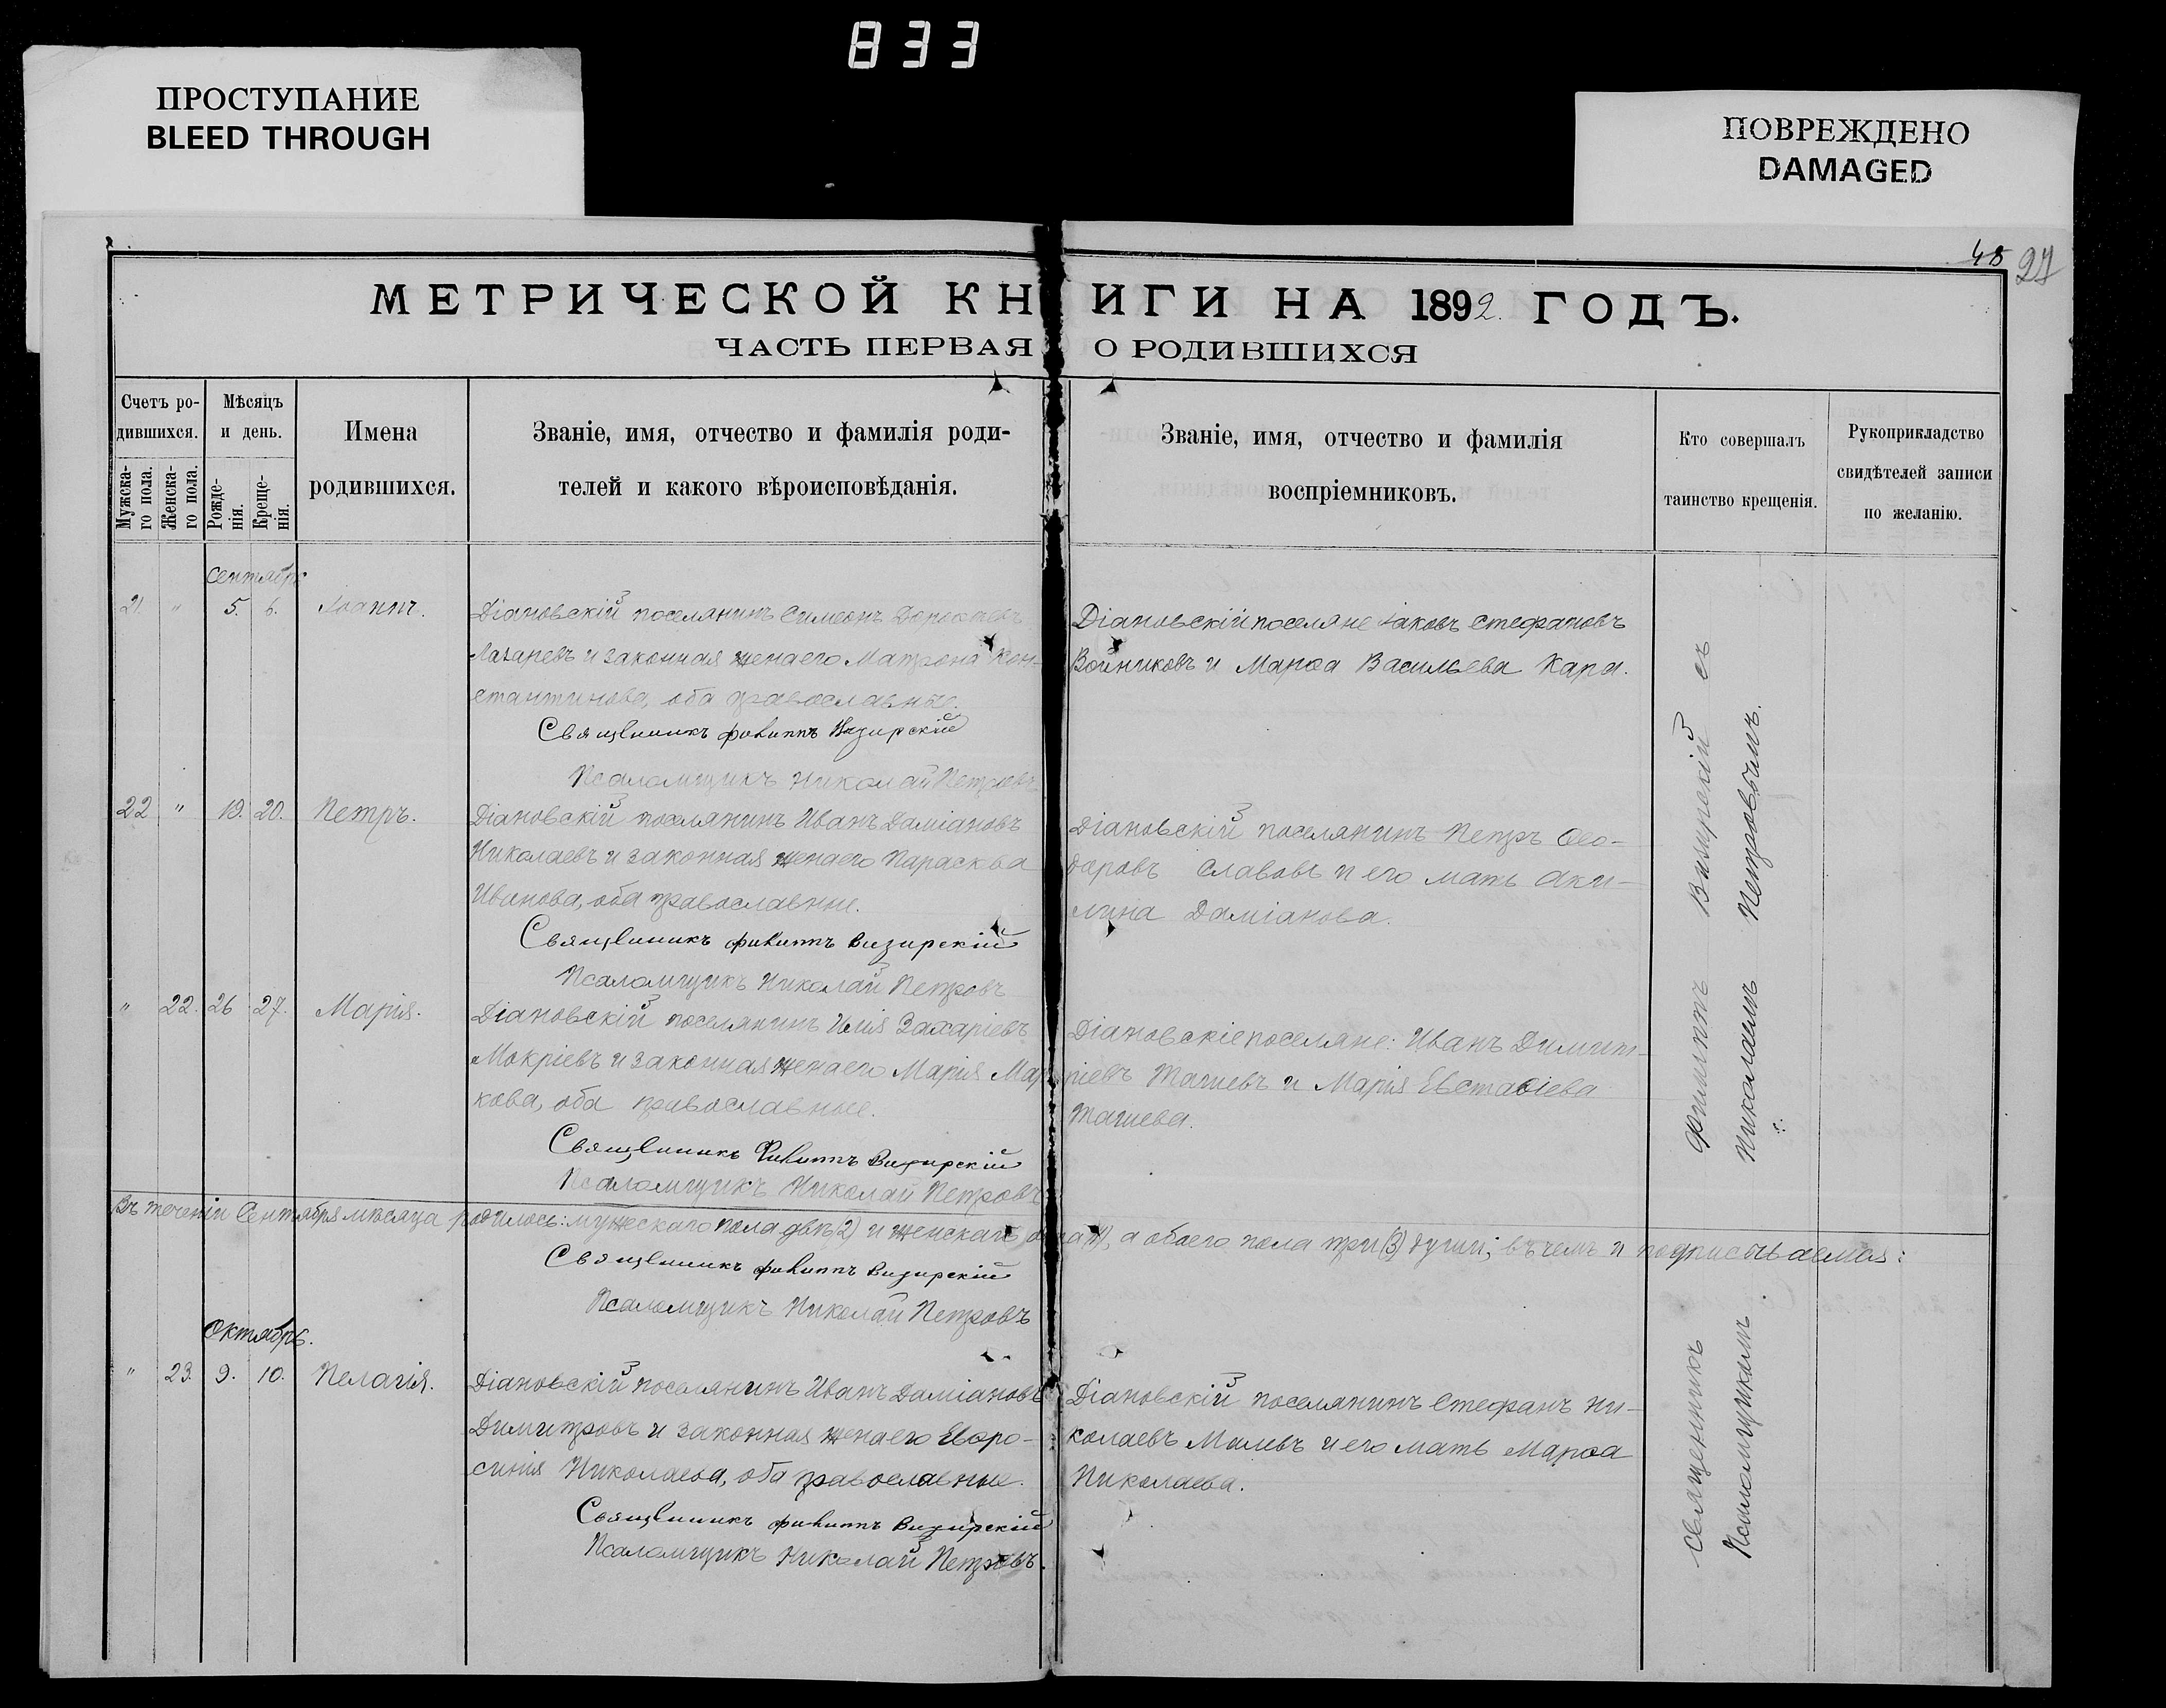 833
ПРОСТУПАНИЕ
BLEED THROUGH
ПОВРЕЖДЕНО
DAMAGED
48 27
МЕТРИЧЕСКОЙ КНИГИ НА 1892 ГОДЪ.
ЧАСТЬ ПЕРВАЯ О РОДИВШИХСЯ
Счетъ ро-
дившихся.
Мужска-
го пола.
Женска-
го пола.
Мѣсяцъ
и день.
Рожде-
нія.
Креще-
нія.
Имена
родившихся.
Званіе, имя, отчество и фамилія роди-
телей и какого вѣроисповѣданія.
Званіе, имя, отчество и фамилія
воспріемниковъ.
Кто совершалъ
таинство крещенія.
Рукоприкладство
свидѣтелей записи
по желанію.
Сентябрь
21. " 5. 6. Іоаннъ.
Діановскій поселянинъ Симеонъ
Лазаревъ и законная жена его Матрона Кон-
стантинова, оба православные.
Священникъ Филиппъ Визирскій
Псаломщикъ Николай Петровъ
Діановскій поселяне Іаковъ Стефановъ
Войниковъ и Марѳа Васильева Кара.
22 " 19. 20. Петръ.
Діановскій поселянинъ Иванъ Даміановъ
Николаевъ и законная жена его Параскева
Иванова, оба православные.
Священникъ Филиппъ Визирскій
Псаломщикъ Николай Петровъ
Діановскій поселянинъ Петръ Ѳео-
доровъ Славовъ и его мать Аки-
лина Даміанова.
" 22. 26 27. Марія.
Діановскій поселянинъ Илія Захаріевъ
Мокріевъ и законная жена его Марія Мар-
кова, оба православные.
Священникъ Филиппъ Визирскій
Псаломщикъ Николай Петровъ
Діановскіе поселяне: Иванъ Димит-
ріевъ Тагиевъ и Марія Евстаѳіева
Тагиева.
Въ теченіи Сентября мѣсяца родилось: мужескаго пола двѣ (2) и женскаго одна (1), а обоего пола три (3) души; въ чемъ и подписываемся:
Священникъ Филиппъ Визирскій
Псаломщикъ Николай Петровъ
Октябрь.
" 23. 9. 10. Пелагія.
Діановскій поселянинъ Иванъ Даміановъ
Димитровъ и законная жена его Евфро-
синія Николаева, оба православные.
Священникъ Филиппъ Визирскій
Псаломщикъ Николай Петровъ.
Діановскій поселянинъ Стефанъ Ни-
колаевъ Малевъ и его мать Марѳа
Николаева.
Священникъ Филиппъ Визирскій съ
Псаломщикомъ Николаемъ Петровымъ.